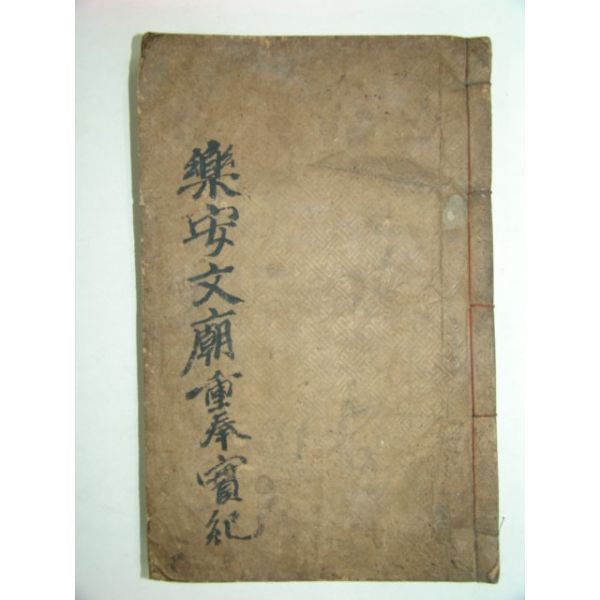 樂安文廟重奉實紀